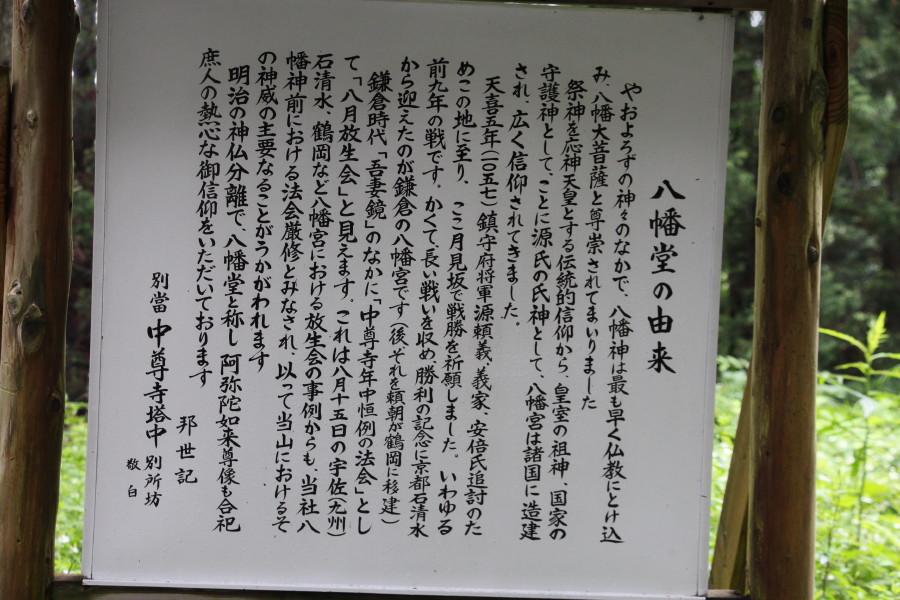 八幡堂の由来
やおよろずの神々のなかで、八幡神は最も早く仏教にとけ込
み、八幡大菩薩と尊崇されてまいりました
祭神を応神天皇とする伝統的信仰から、皇室の祖神、国家の
守護神として、ことに源氏の氏神として、八幡宮は諸国に造建
され、広く信仰されてきました。
天喜五年(一〇五七)鎮守府将軍源頼義、義家、安倍氏追討のた
めこの地に至り、ここ月見坂で戦勝を祈願しました。いわゆる
前九年の戦です。かくて、長い戦いを収め、勝利の記念に京都石清水
から迎えたのが鎌倉の八幡宮です(後、それを頼朝が鶴岡に移建)
鎌倉時代「吾妻鏡」のなかに「中尊寺年中恒例の法会」とし
て「八月放生会」と見えます。これは八月十五日の宇佐(九州)
石清水、鶴岡など八幡宮における放生会の事例からも、当社八
幡神前における法会厳修とみなされ、以って当山におけるそ
の神威の主要なることがうかがわれます
明治の神仏分離で、八幡堂と称し 阿弥陀如来尊像も合祀
庶人の熱心な御信仰をいただいております
邦世記
別當 中尊寺塔中 別所坊
敬白